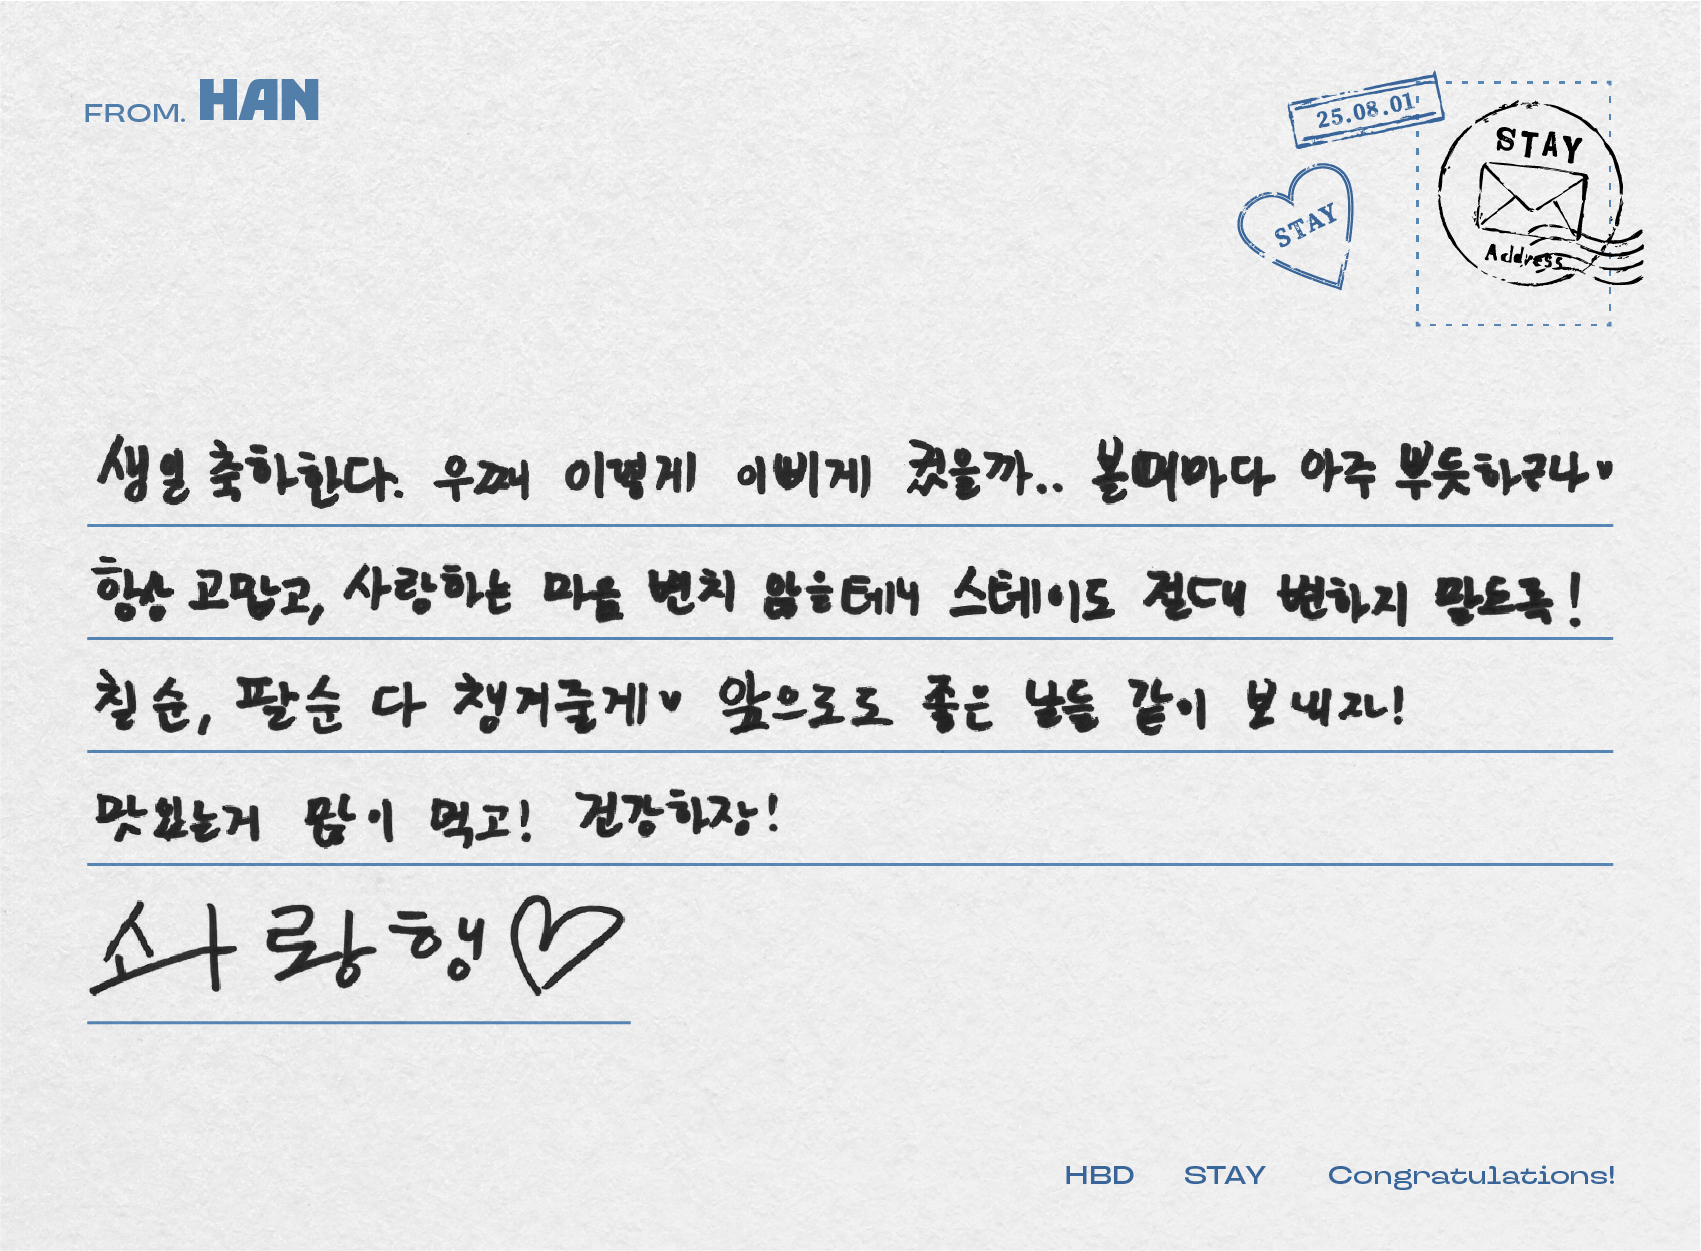 FROM. HAN
25.08.01
STAY
STAY
Address
생일 축하한다. 우째 이렇게 이삐게 컸을까.. 볼때마다 아주 뿌듯하구나♥
항상 고맙고, 사랑하는 마음 변치 않을테니 스테이도 절대 변하지 말도록!
칠순, 팔순 다 챙겨줄게♥ 앞으로도 좋은 날들 같이 보내자!
맛있는거 많이 먹고! 건강하장!
사랑행♡
HBD STAY Congratulations!